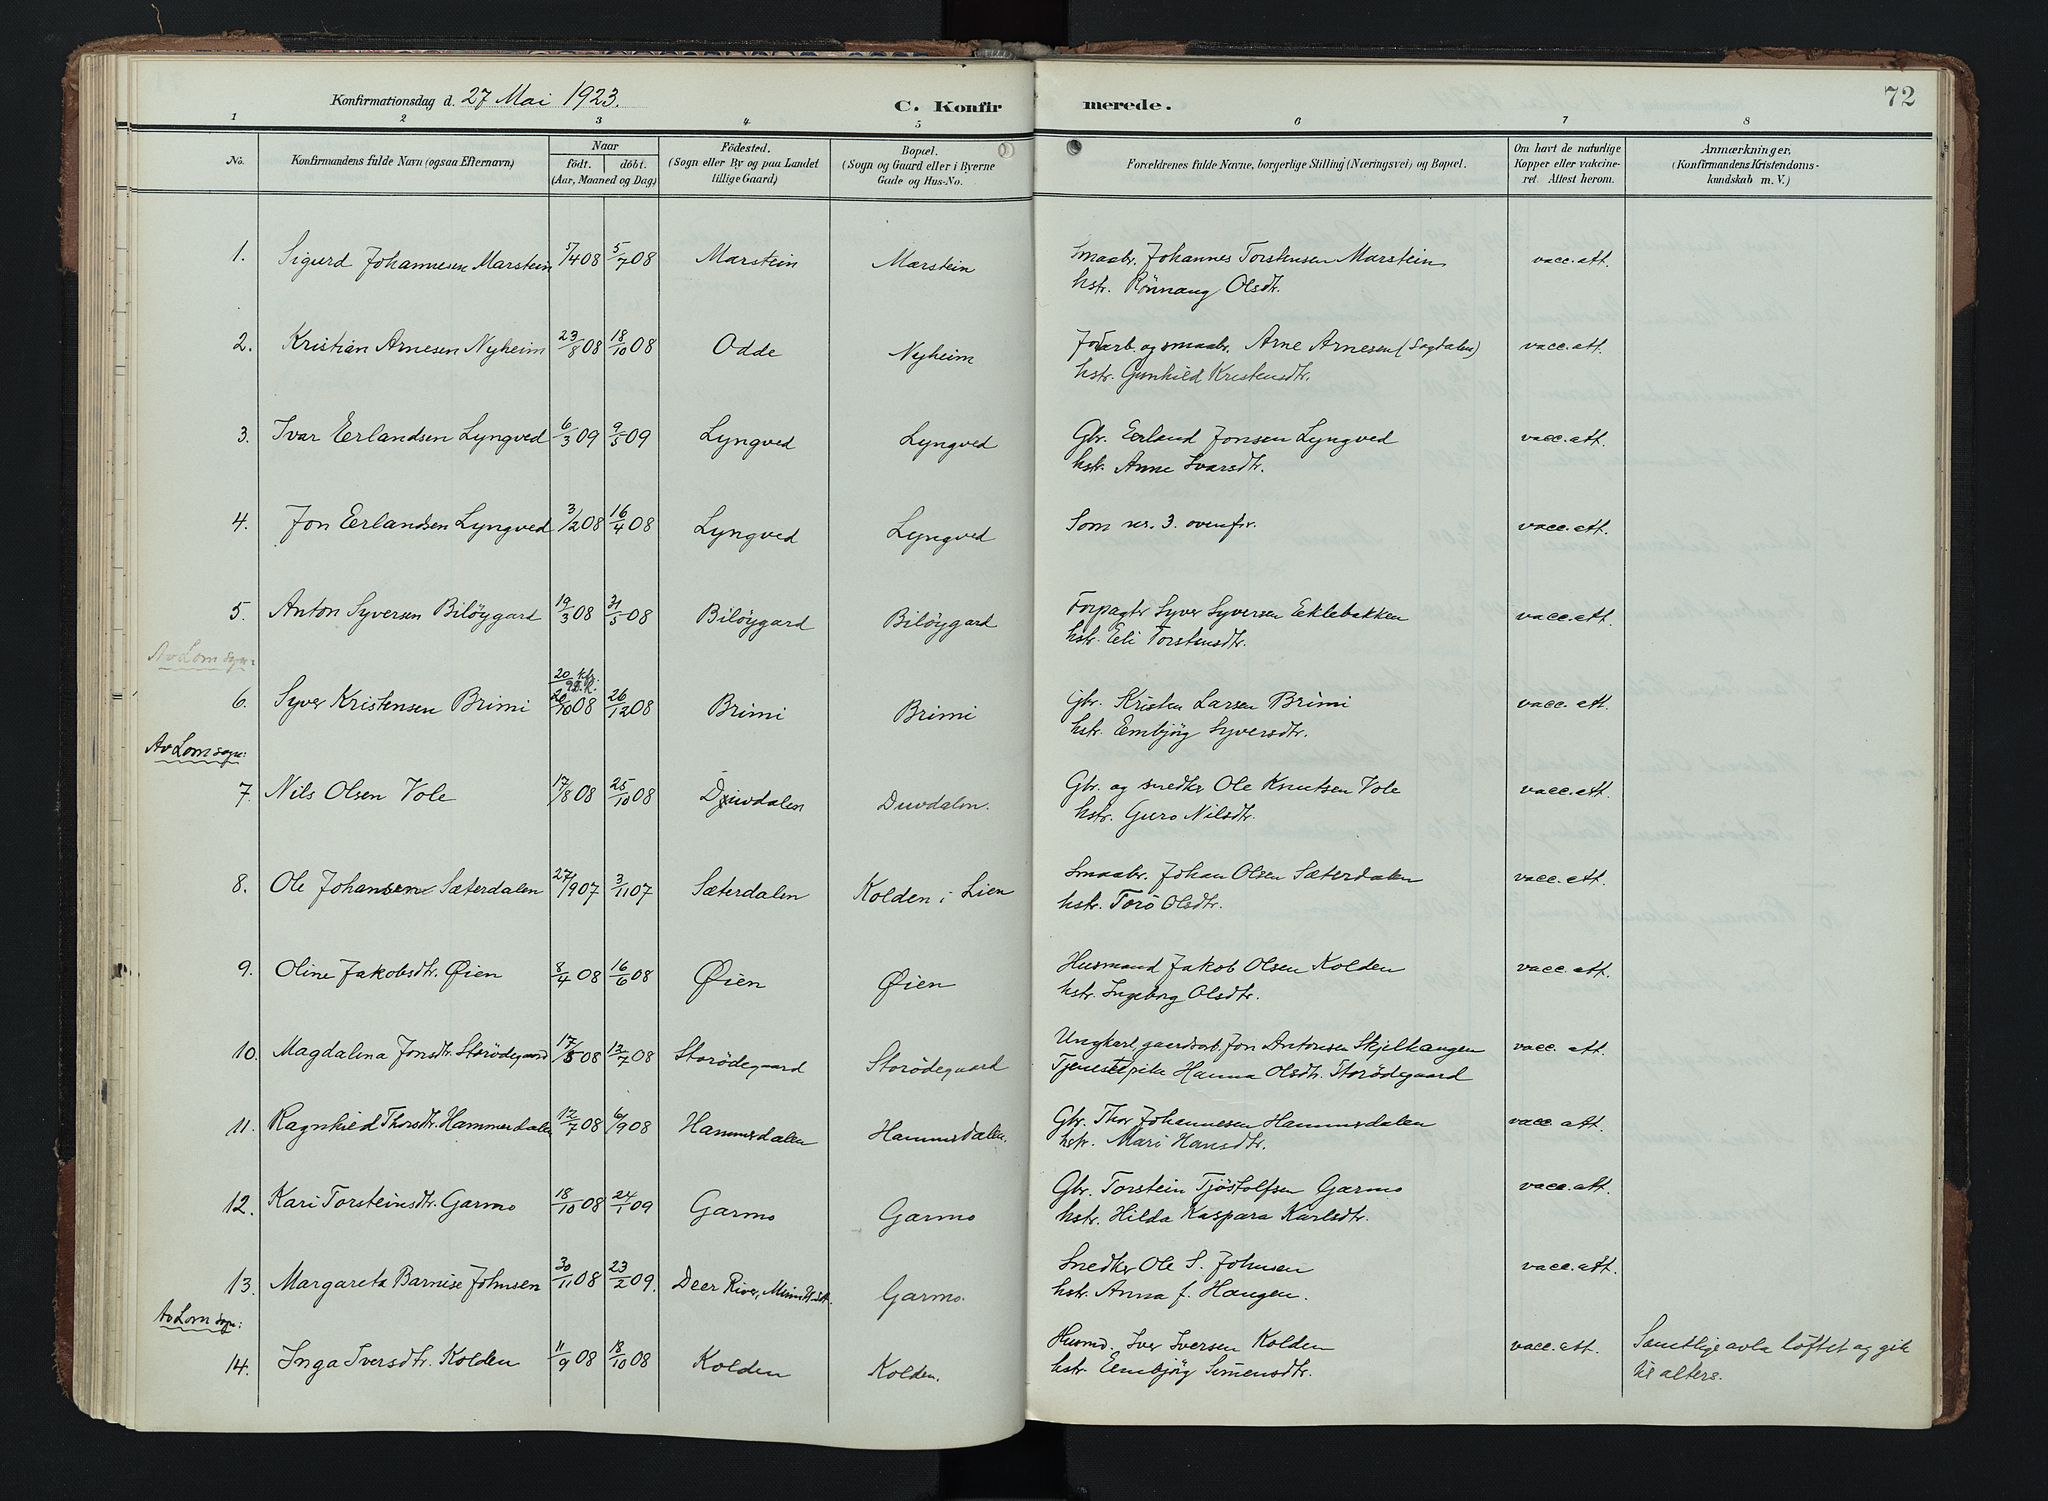 Konfirmationsdag d. 27 Mai 1923.
C. Konfirmerede.
72
1 2 3 4 5 6 7 8
No.
Konfirmandens fulde Navn (ogsaa Efternavn)
Naar
født. døbt.
(Aar, Maaned og Dag)
Fødested.
(Sogn eller By og paa Landet
tillige Gaard)
Bopæl.
(Sogn og Gaard eller i Byerne
Gade og Hus-No.
Forældrenes fulde Navne, borgerlige Stilling (Næringsvei) og Bopæl.
Om havt de naturlige
Kopper eller vakcine-
ret. Attest herom.
Anmærkninger,
(Konfirmandens Kristendoms-
kundskab m. V.)
1. Sigurd Johannesen Marstein 5/4 08 5/7 08 Marstein Marstein Smaabr. Johannes Torstensen Marstein vacc. att.
hstr. Rønnaug Olsdtr.
2. Kristian Arnesen Nyheim 23/8 08 18/10 08 Odde Nyheim Jordarb. og smaabr. Arne Arnesen (Sagdalen) vacc. att.
hstr. Gunhild Kristensdtr.
3. Ivar Eerlandsen Lyngved 6/3 09 9/5 09 Lyngved Lyngved Gbr. Eerland Jonsen Lyngved vacc. att.
hstr. Anne Ivarsdtr.
4. Jon Eerlandsen Lyngved 3/2 08 16/4 08 Lyngved Lyngved Som nr. 3. ovenfr. vacc. att.
5. Anton Syversen Biløygard 19/3 08 31/5 08 Biløygard Biløygard Forpagtr Syver Syversen Eeklebakken vacc. att.
hstr. Eeli Torstensdtr.
Av Lom sogn:
20
6. Syver Kristensen Brimi 20/10 08 26/12 08 Brimi Brimi Gbr. Kristen Larsen Brimi vacc. att.
hstr. Eembjørg Syversdtr.
Av Lom sogn:
7. Nils Olsen Vole 17/8 08 25/10 08 Djuvdalen Duvdalen. Gbr. og snedker Ole Knutsen Vole vacc. att.
hstr. Guro Nilsdtr.
8. Ole Johansen Sæterdalen 27/9 07 3/11 07 Sæterdalen Kolden i Lien Smaabr. Johan Olsen Sæterdalen vacc. att.
hstr. Torø Olsdtr.
9. Oline Jakobsdtr. Øien 8/4 08 16/6 08 Øien Øien Husmand Jakob Olsen Kolden vacc. att.
hstr. Ingeborg Olsdtr.
10. Magdalena Jonsdtr. Storødegaard 17/5 08 12/7 08 Storødegaard Storødegaard Ungkarl, gaardsarb. Jon Antonsen Skjelhaugen vacc. att.
Tjenestepike Hanna Olsdtr. Storødegaard
11. Ragnhild Thorsdtr. Hammerdalen 12/7 08 6/9 08 Hammerdalen Hammerdalen. Gbr. Thor Johannesen Hammerdalen vacc. att.
hstr. Mari Hansdtr.
12. Kari Torsteinsdtr. Garmo 18/10 08 24/1 09 Garmo Garmo Gbr. Torstein Tjøstolfsen Garmo vacc. att.
hstr. Hilda Kaspara Karlsdtr.
13. Margareta Barnise Johnsen 30/11 08 23/2 09. Deer River, Garmo. Snedker Ole S. Johnsen vacc. att.
hstr. Anna f. Haugen.
Av Lom sogn:
14. Inga Iversdtr. Kolden 11/9 08 18/10 08 Kolden Kolden. Husmd. Iver Iversen Kolden vacc. att. Samtlige avla løftet og gik
hstr. Eembjørg Simensdtr. til alters.